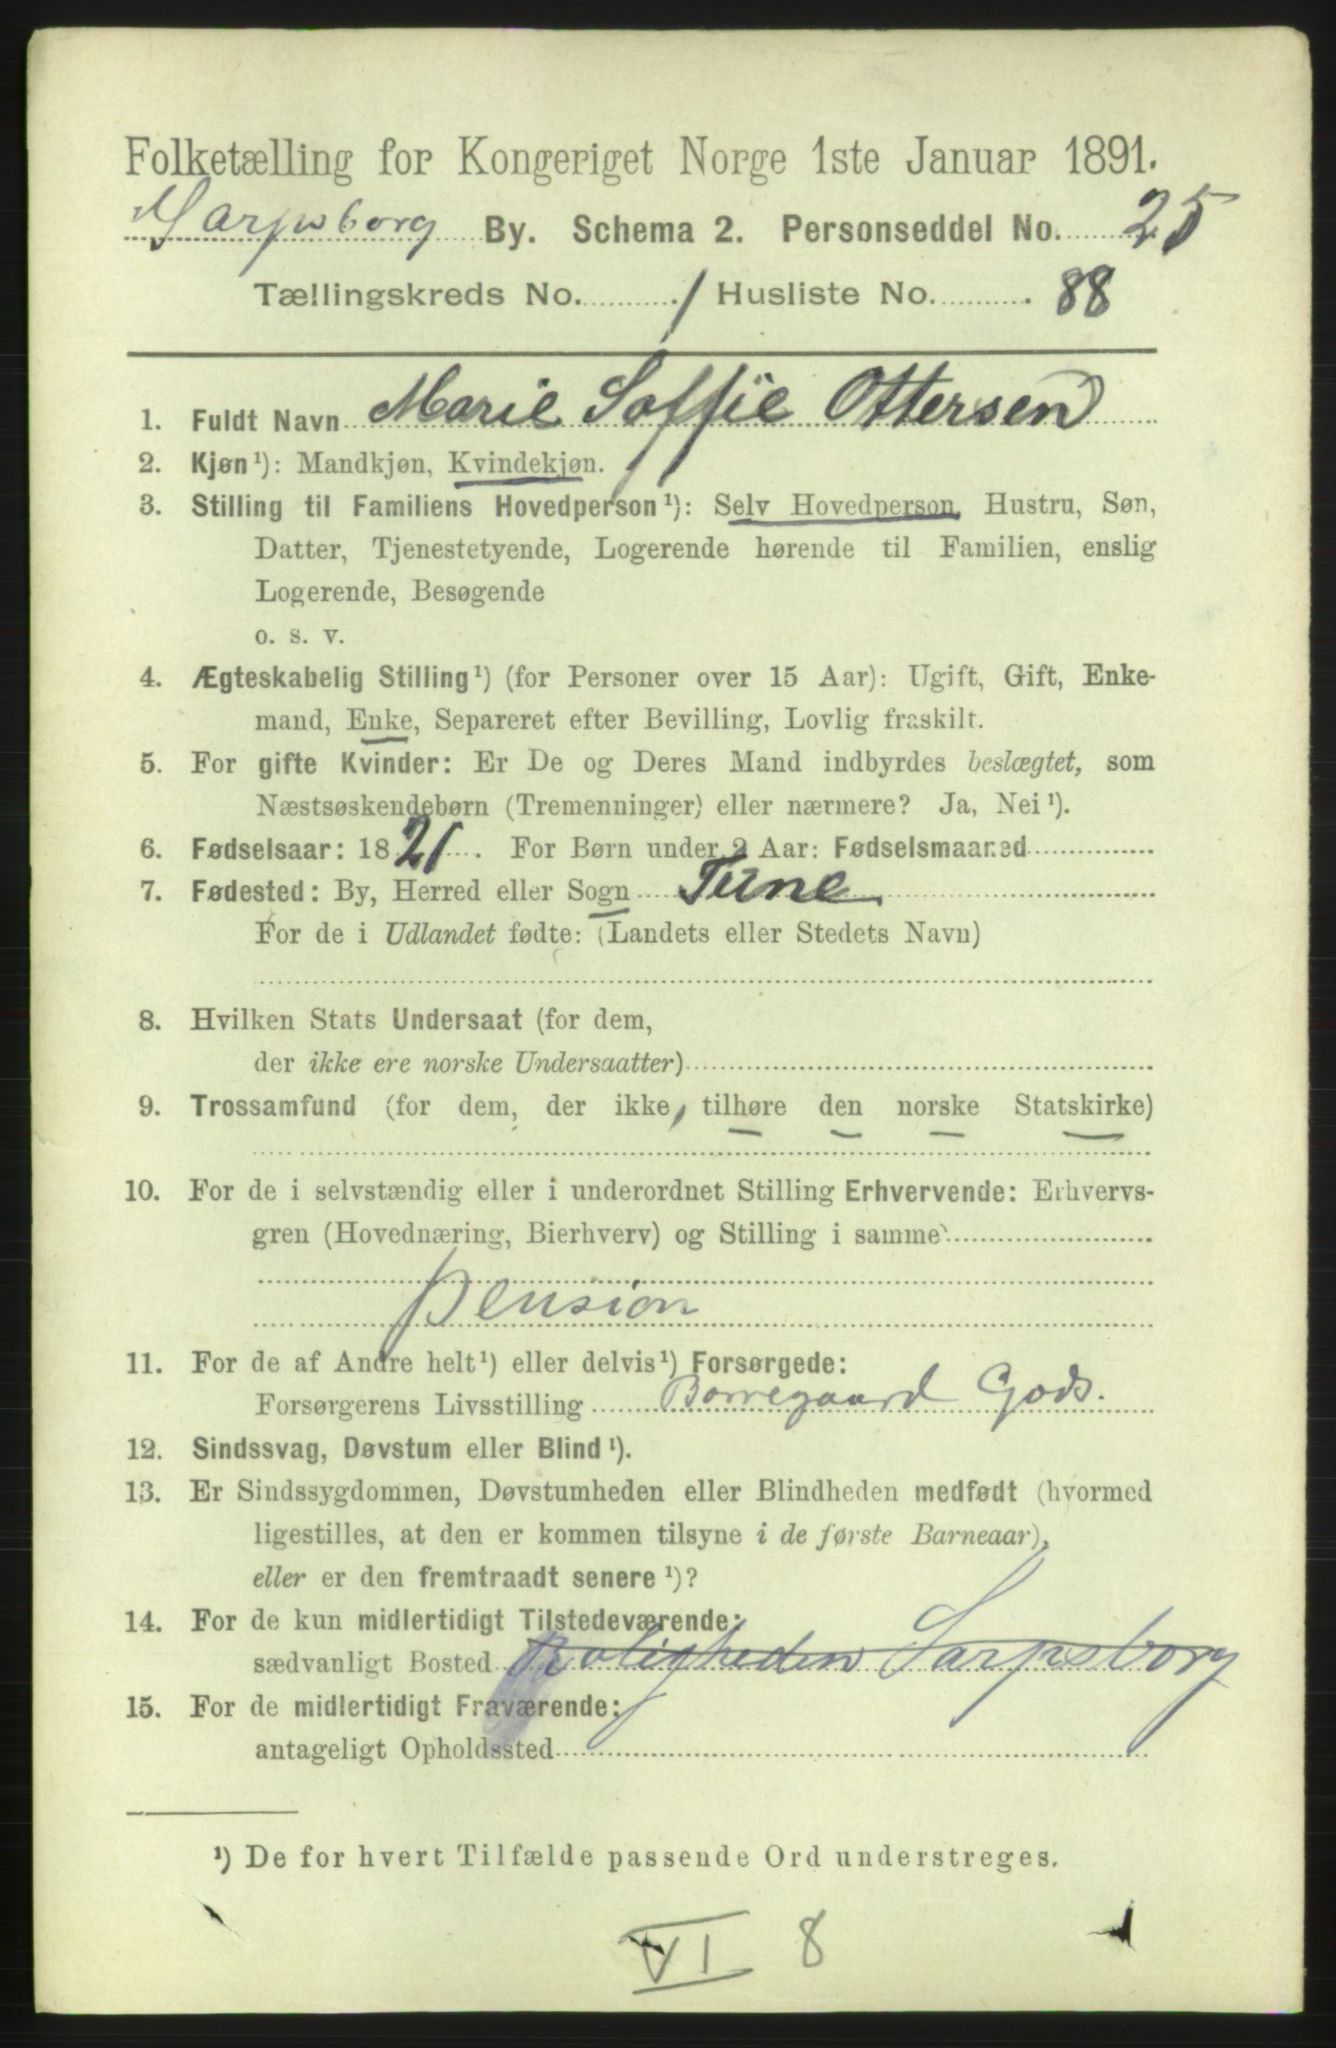 Folketælling for Kongeriget Norge 1ste Januar 1891.
Sarpsborg By. Schema 2. Personseddel No. 25
Tællingskreds No. 1 Husliste No. 88
1. Fuldt Navn Marie Soffie Ottersen
2. Kjøn ¹): Mandkjøn, Kvindekjøn.
3. Stilling til Familiens Hovedperson ¹): Selv Hovedperson, Hustru, Søn,
Datter, Tjenestetyende, Logerende hørende til Familien, enslig
Logerende, Besøgende
o. s. v.
4. Ægteskabelig Stilling ¹) (for Personer over 15 Aar): Ugift, Gift, Enke-
mand, Enke, Separeret efter Bevilling, Lovlig fraskilt.
5. For gifte Kvinder: Er De og Deres Mand indbyrdes beslægtet, som
Næstsøskendebørn (Tremenninger) eller nærmere? Ja, Nei ¹).
6. Fødselsaar: 1821. For Børn under 2 Aar: Fødselsmaaned
7. Fødested: By, Herred eller Sogn Tune
For de i Udlandet fødte: (Landets eller Stedets Navn)
8. Hvilken Stats Undersaat (for dem,
der ikke ere norske Undersaatter)
9. Trossamfund (for dem, der ikke tilhøre den norske Statskirke)
10. For de i selvstændig eller i underordnet Stilling Erhvervende: Erhvervs-
gren (Hovednæring, Bierhverv) og Stilling i samme
Pension
11. For de af Andre helt ¹) eller delvis ¹) Forsørgede:
Forsørgerens Livsstilling Borregaard Gods.
12. Sindssvag, Døvstum eller Blind ¹).
13. Er Sindssygdommen, Døvstumheden eller Blindheden medfødt (hvormed
ligestilles, at den er kommen tilsyne i de første Barneaar),
eller er den fremtraadt senere ¹)?
14. For de kun midlertidigt Tilstedeværende:
sædvanligt Bosted Roligheden Sarpsborg
15. For de midlertidigt Fraværende:
antageligt Opholdssted
¹) De for hvert Tilfælde passende Ord understreges.
VI 8